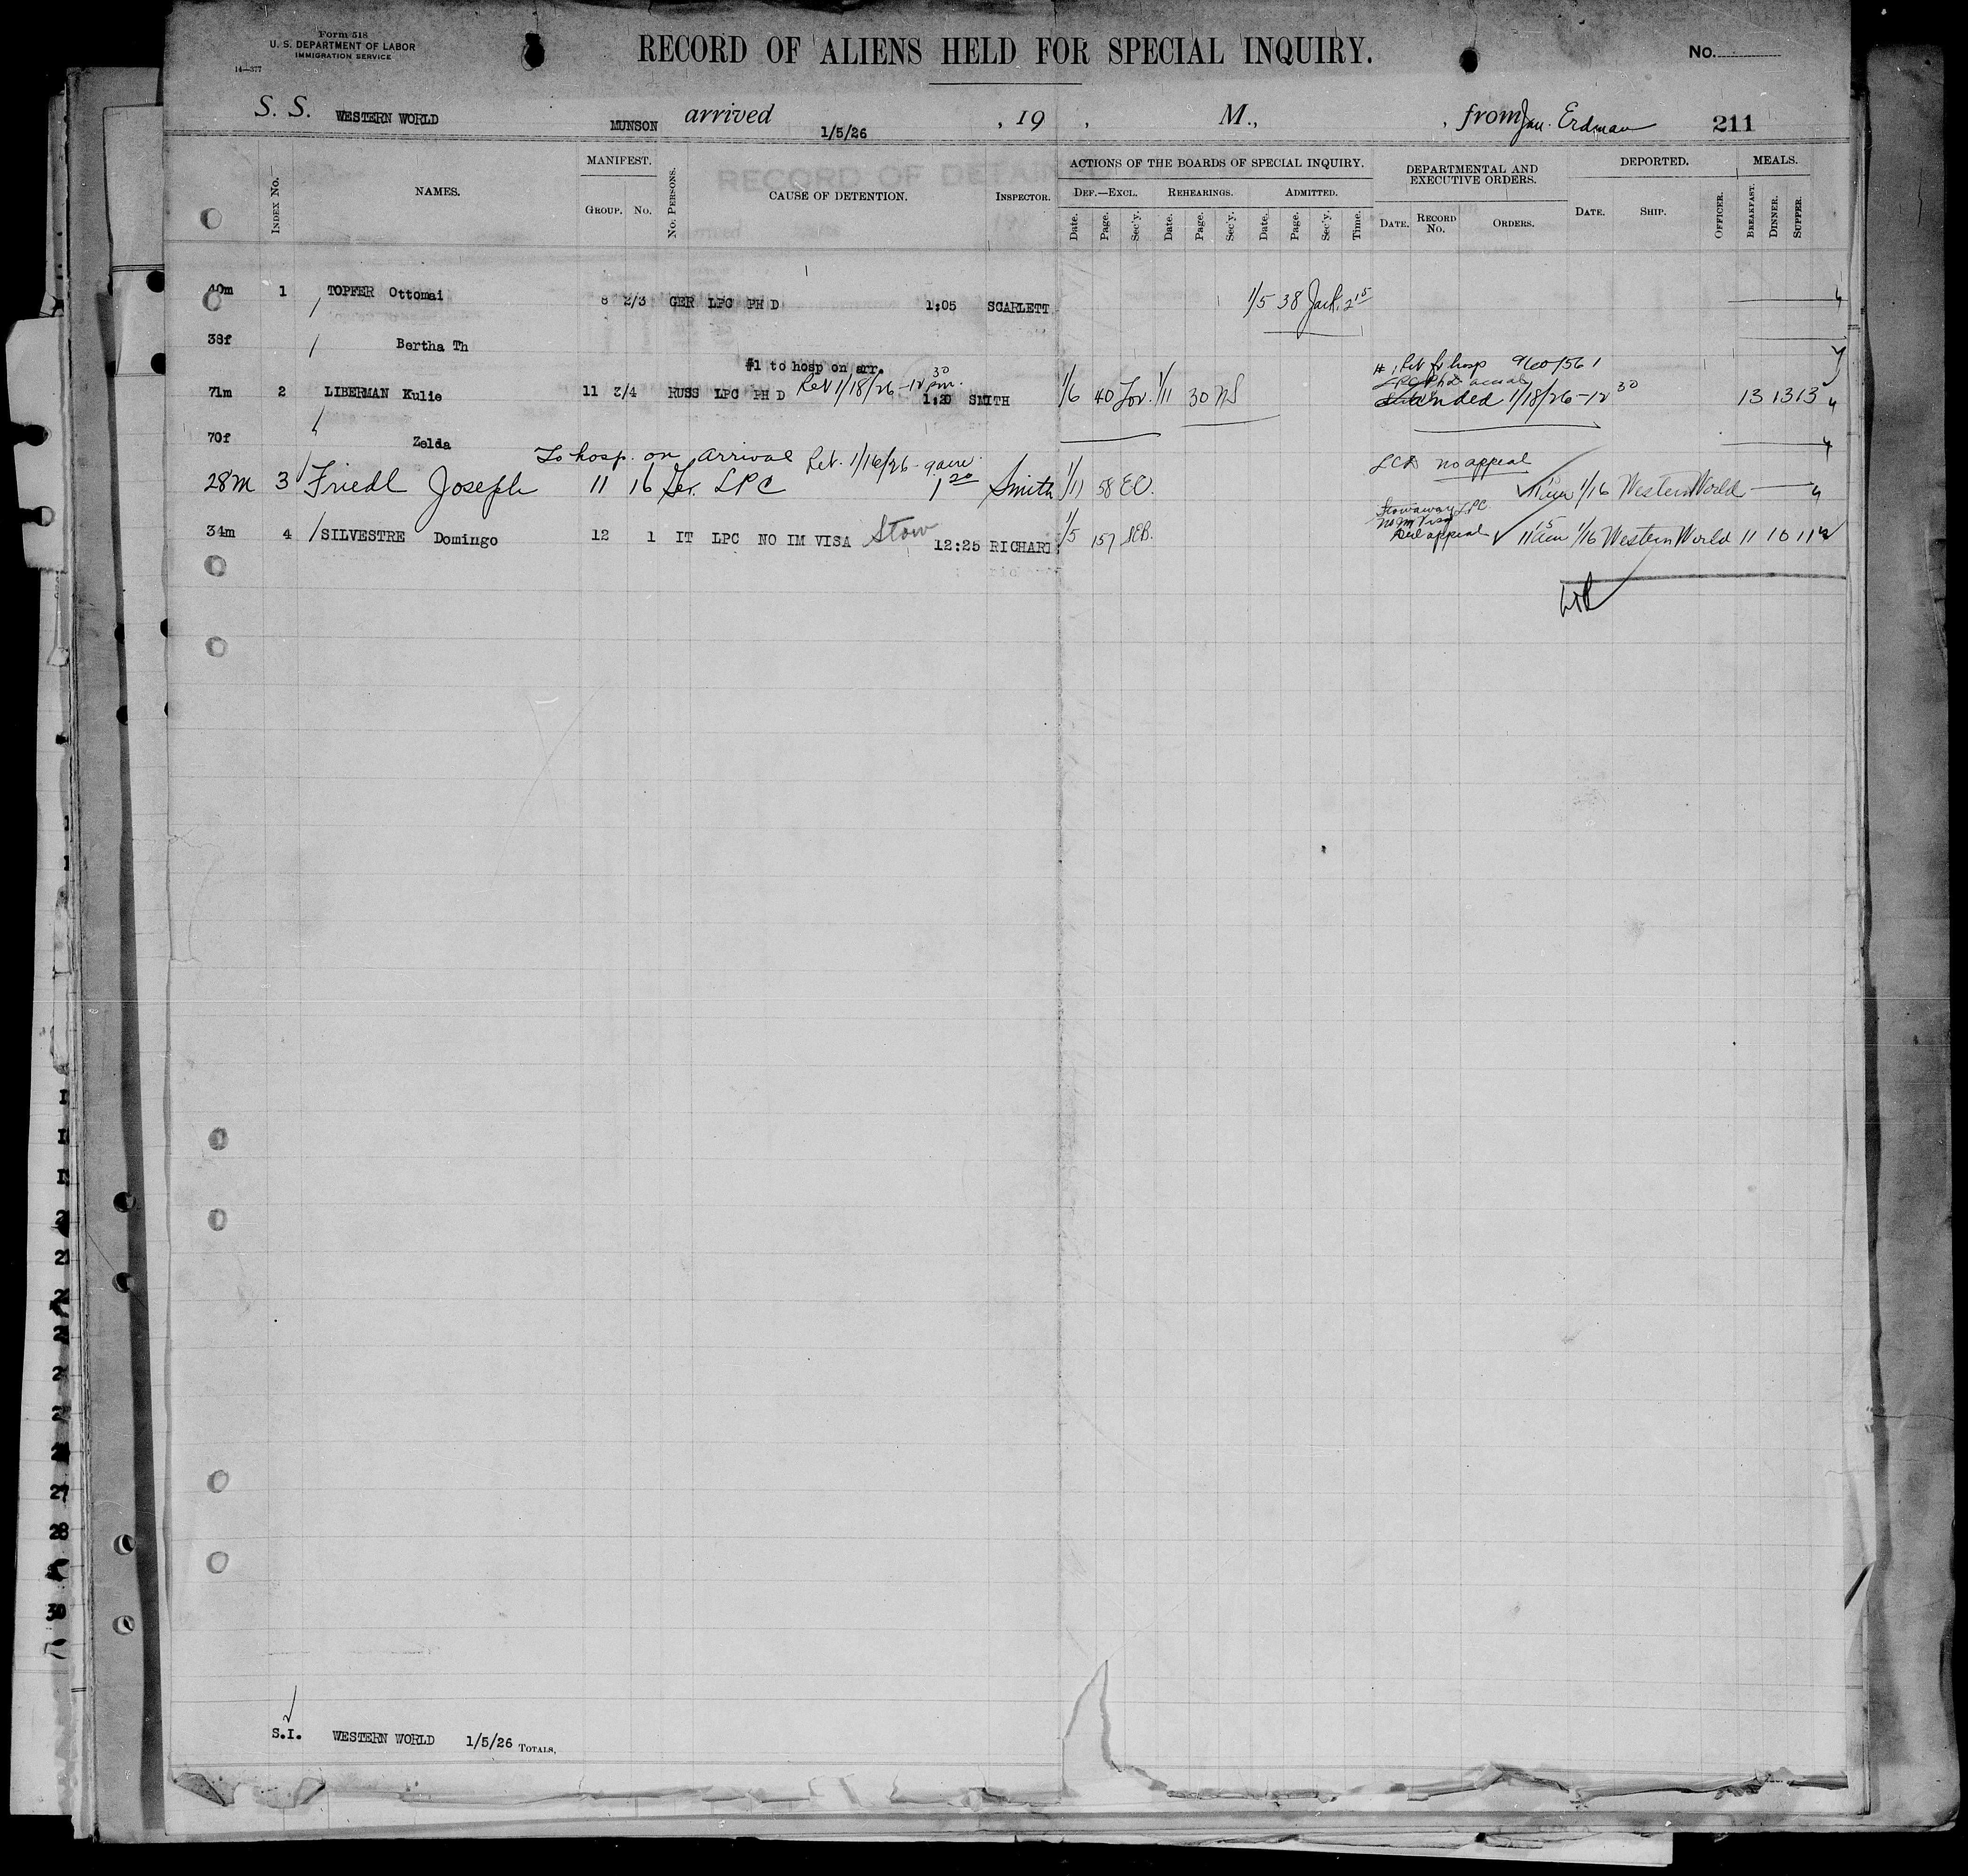 Form 518
U. S. DEPARTMENT OF LABOR
IMMIGRATION SERVICE
14—377
RECORD OF ALIENS HELD FOR SPECIAL INQUIRY.
No.
S. S. WESTERN WORLD MUNSON arrived 1/5/26 , 19 , M., , from Jan. Erdman 211
INDEX No. NAMES. MANIFEST. GROUP. No. No. PERSONS. CAUSE OF DETENTION. INSPECTOR. ACTIONS OF THE BOARDS OF SPECIAL INQUIRY. DEF.—EXCL. Date. Page. Sec'y. REHEARINGS. Date. Page. Sec'y. ADMITTED. Date. Page. Sec'y. Time. DEPARTMENTAL AND EXECUTIVE ORDERS. DATE. RECORD No. ORDERS. DEPORTED. DATE. SHIP. OFFICER. MEALS. BREAKFAST. DINNER. SUPPER.
40m 1 TOPFER Ottomai 8 2/3 GER LPC PH D 1:05 SCARLETT 1/5 38 Jack. 2 15
38f Bertha Th
#1 to hosp on arr. # 1 Ret fr hosp 9600/561
Ret 1/18/26 - 12 30 pm.
71m 2 LIBERMAN Kulie 11 3/4 RUSS LPC PH D 1:20 SMITH 1/6 40 Lov. 1/11 30 NS Landed 1/18/26 - 12 30 13 13 13
70f Zelda
To hosp. on arrival Ret. 1/16/26 - 9 am. no appeal
28m 3 Friedl Joseph 11 16 Ger. LPC 1 20 Smith 1/11 58 EO. 1/16 Western World
Stowaway LPC
No IM Visa
34m 4 SILVESTRE Domingo 12 1 IT LPC NO IM VISA Stow 12:25 RICHARD 1/5 157 appeal 11 15 am 1/16 Western World 11 10 11
S.I. WESTERN WORLD 1/5/26 TOTALS,